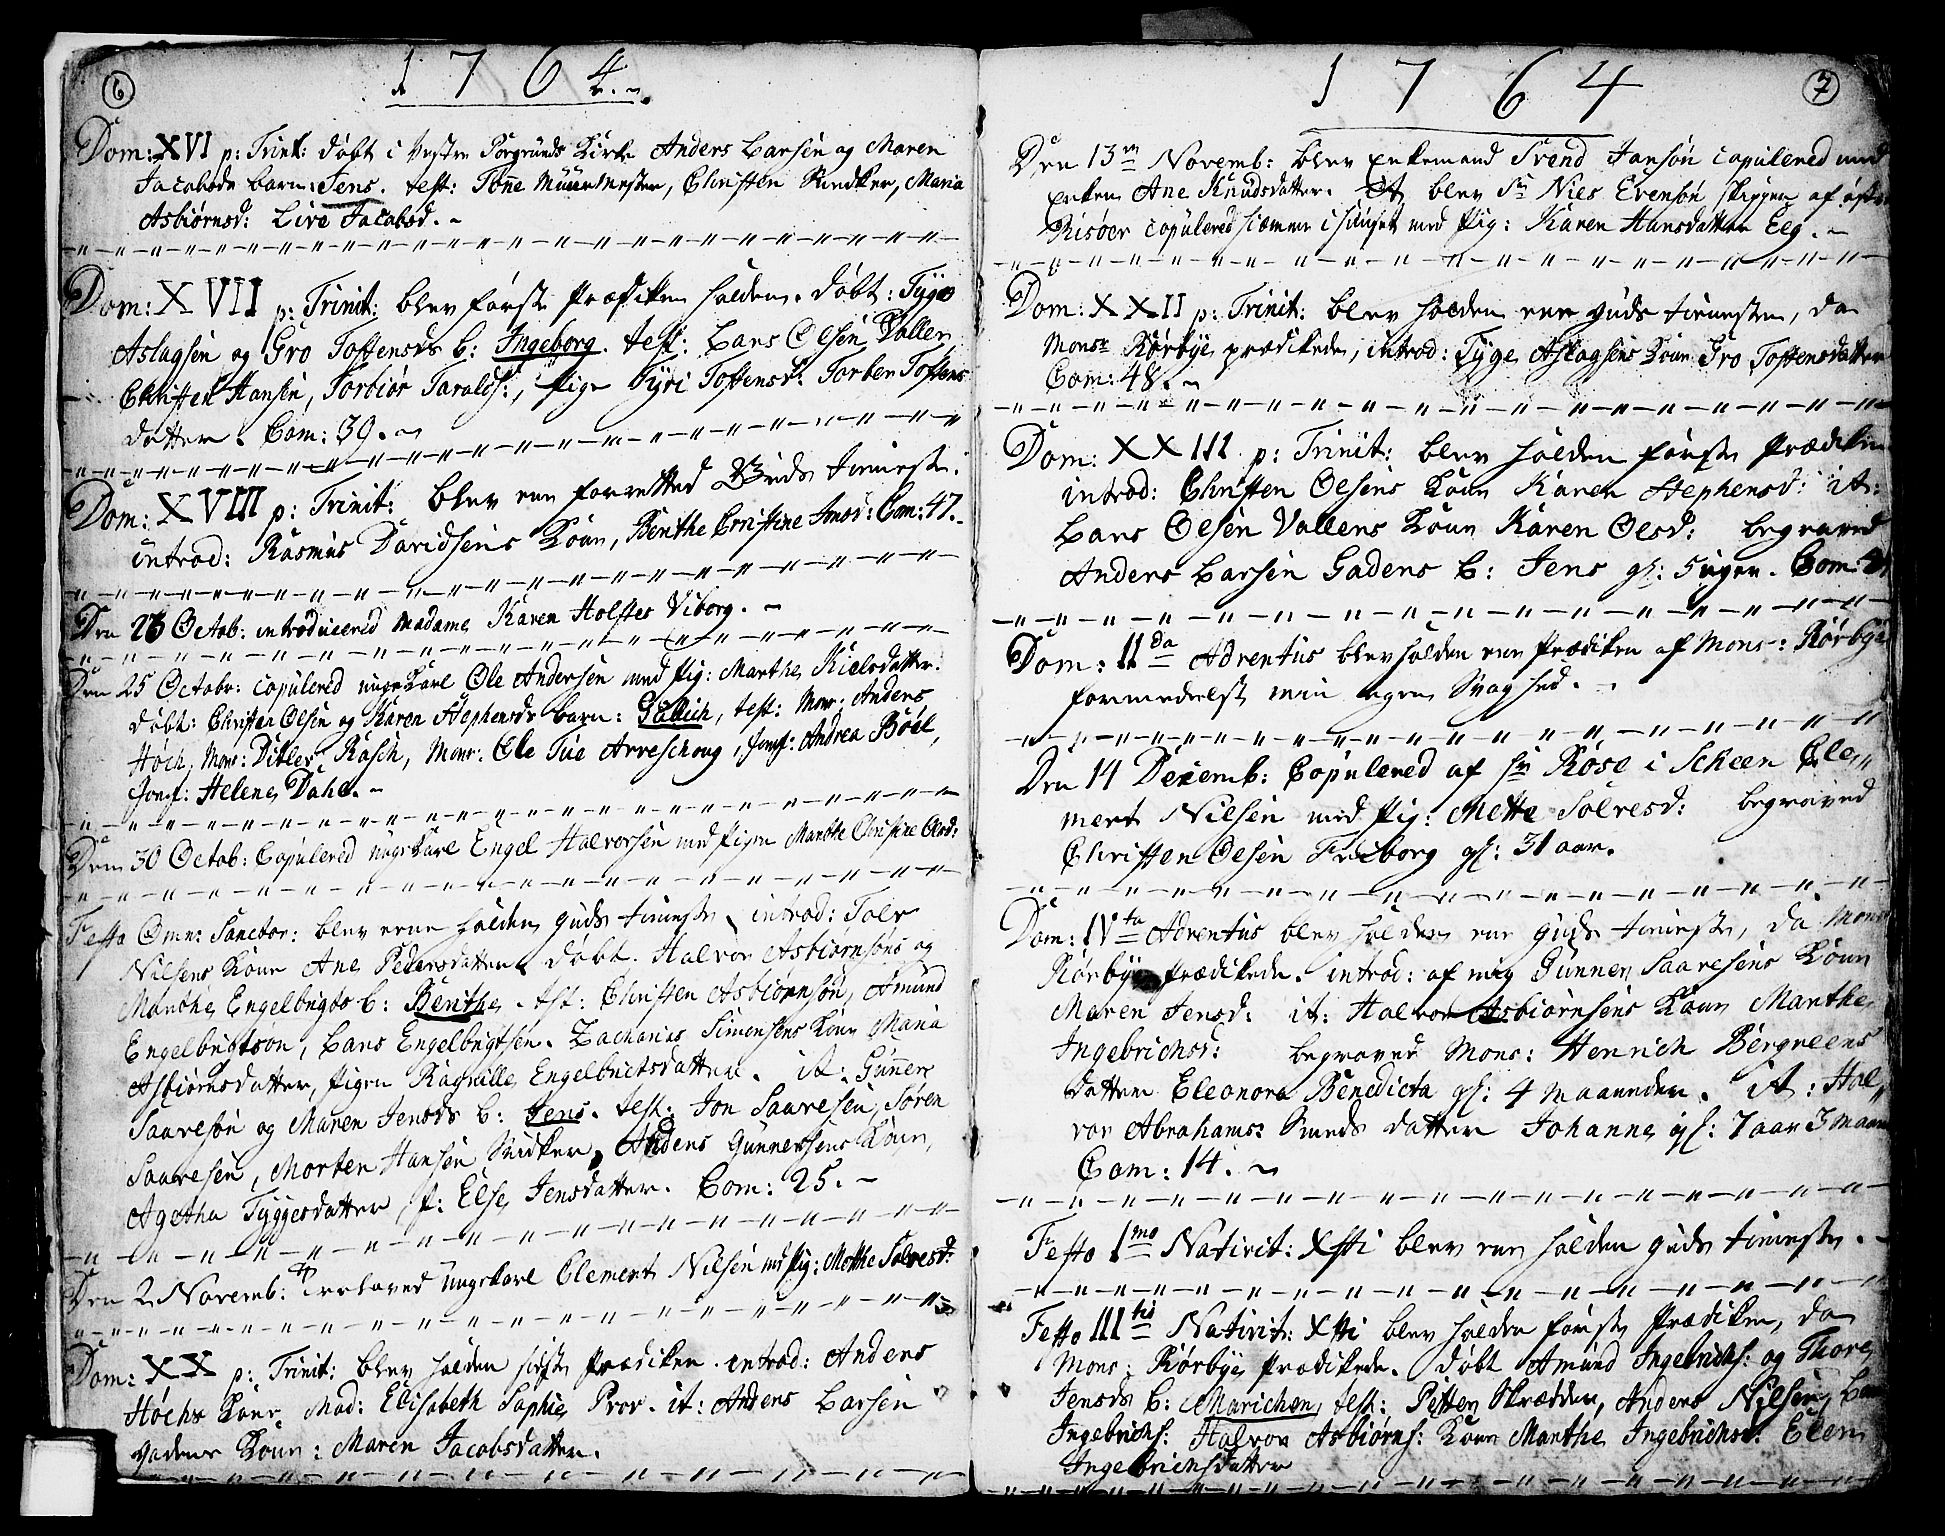 6
1764.
Dom: XVI p: Trinit: døbt i Vestre Porgrunds Kirke Anders Larsen og Maren
Jacobsds barn: Jens. test: Tønne Muurmester, Christen Snedker, Maria
Asbiørnsd: Live Jacobsd.
Dom: XVII p: Trinit: blev første Prædiken holden. døbt: Tyge
Aslagsen og Gro Tostensds b: Ingeborg. test: Lars Olsen Vallen
Christen Hansen, Torbiør Taralds:, Pige Tyri Tostensd: Torber Tostens
datter. Com: 39.
Dom: XVIII p: Trinit: blev een forretted Guds tieneste.
introd: Rasmus Davidsens Kone, Benthe Cristine Amos: Com: 47.
Den 26 Octob: introducered Madame Karen Holstes Viborg.
Den 25 Octobr: copulered ungeKarl Ole Andersen med Pig: Marthe Nielsdatter.
døbt: Christen Olsen og Karen Stephensds barn: Gallich, test: Monr: Anders
Høch, Monr: Ditlev Rasch, Monr: Ole Tue Arreschoug, Jomf: Andrea Boël,
Jomf: Helene Dahl.
Den 30 Octob: Copulered ungeKarl Engel Halvorsen med Pigen Marthe Christine Olsd:
Festo Omn: Sanctor: blev eene holden Guds tieneste, introd: Solve
Nilsens Kone Ane Pedersdatter. døbt. Halvor Asbiørnsøns og
Marthe Engelbrigds b: Benthe. tst: Christen Asbiørnsøn, Amund
Engelbrigtsøn, Lars Engelbrigtsen. Zacharias Simensens Kone Maria
Asbiørnsdatter, Pigen Ragnille Engelbretsdatter. it: Gunner
Saavesøn og Maren Jensds b: Jens. test: Jon Saavesen, Søren
Saavesen, Morten Hansen Snidker, Anders Gunnersens Kone,
Agetha Tyggesdatter, P: Else Jensdatter. Com: 25.
Den 2 Novemb: Troloved Ungekarl Clement Nilsen md Pig: Mette Solvesd:
Dom: XX p: Trinit: blev holden første Prædiken. introd: Anders
Høchs Kone Mad: Elisabeth Sophie Prov. it: Anders Larsen
Gadens Kone: Maren Jacobsdatter.
7
1764
Den 13 Novemb: blev Enkemand Svend Jansøn copulered med
Enken Ane Knudsdatter. It blev Sr Nies Evensøn skipper af øster
Risøer copulered hiemme i huuset med Pig: Karen Hansdatter Eeg.
Dom: XXII p: Trinit: blev holden een Guds tieneste, da
Monsr Kørbye prædikede, introd: Tyge Aslagsens Kone Gro Tostensdatter
Com: 48.
Dom: XXIII p: Trinit: blev holden første Prædiken
introd: Christen Olsens Kone Karen Stephensd: it:
Lars Olsen Vallens Kone Karen Olsd: begraved
Anders Larsen Gadens b: Jens gl: 5 uger. Com:
Dom: IIda Adventus blev holden een Prædiken af Mons: Kørbye
formedelst min egen Svaghed.
Den 14 Decemb: Copulered af Hr Rose i Scheen Cle„
ment Nilsen med Pig: Mette Solvesd: begraved
Christen Olsen Freborg gl: 31 aar.
Dom: IVta Adventus blev holden een Guds tieneste, da Mons
Kørbye prædikede. introd: af mig Gunner Saavesens Kone
Maren Jensd: it: Halvor Asbiørnsens Kone Marthe
Ingebrichsd: begraved Mons: Henrich Bergreens
datter Eleonora Benedicta gl: 4 maaneder. it: Hal„
vor Abrahams: Smeds datter Johanne gl: 7 aar 3 maan
Com: 14.
Festo Imo Nativit: Xsti blev een holden Guds tieneste.
Festo IIItio Nativit: Xsti blev holden første Prædiken, da
Mons: Kørbye prædikede. døbt Amund Ingebrichs: og Thore
Jensds b: Marichen, test: Petter Skrædder, Anders Nilsen, Lars
Ingebrichs: Halvor Asbiørns: Kone Marthe Ingebrichsd: Elen
Ingebrichsdatter